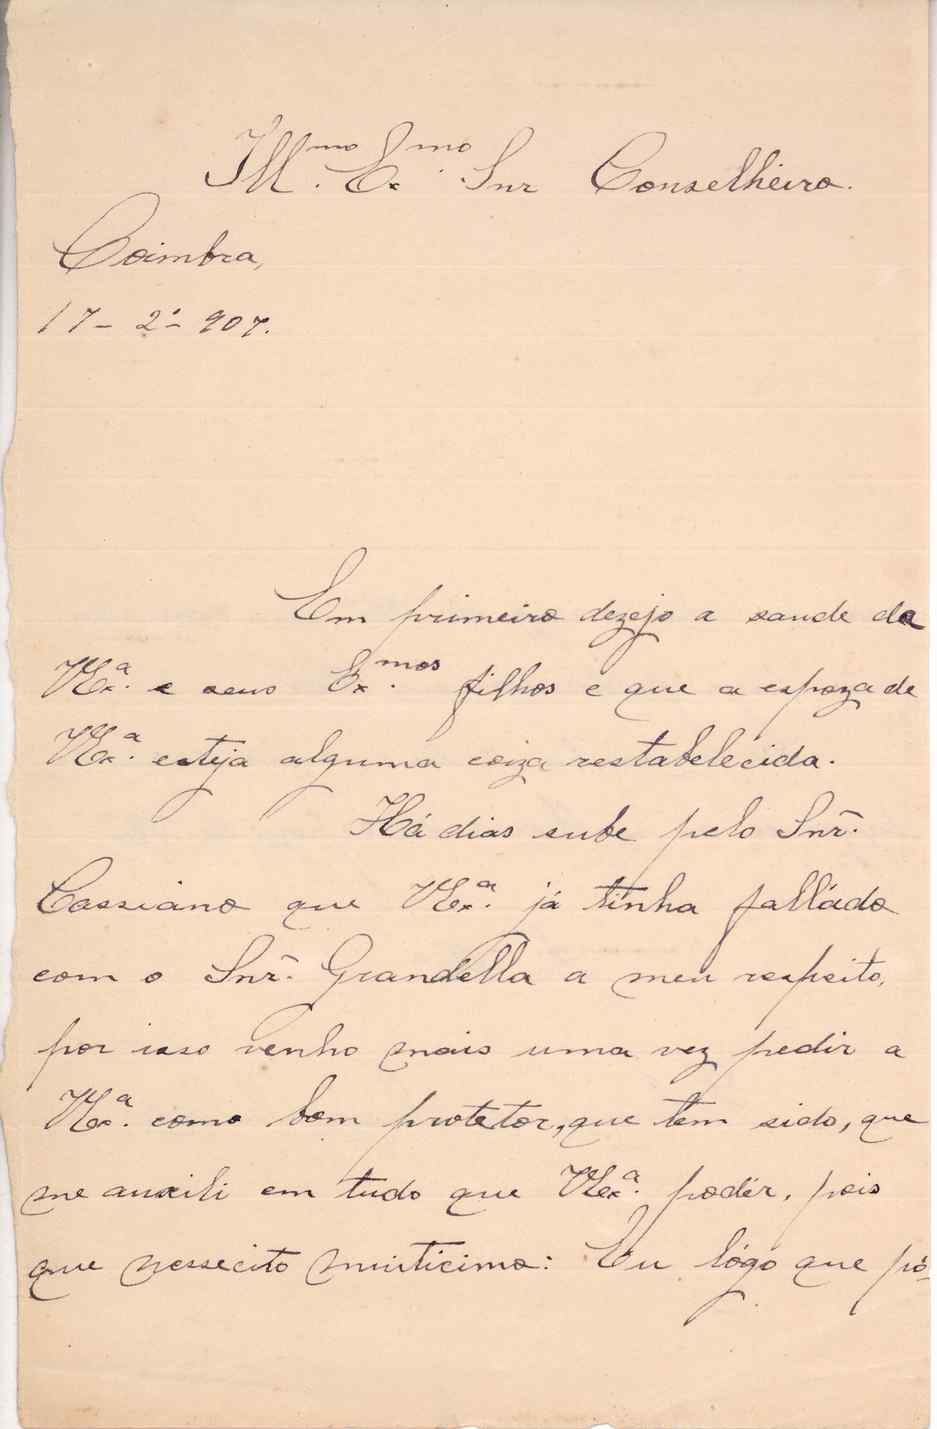 Ill.mo Ex.mo Snr Conselheiro.
Coimbra,
17-2º-907.
Em primeiro dezejo a saude da
VEx.ª e seus Ex.mos filhos e que a espoza de
VEx.ª esteja alguma coiza restabelecida.
Há dias sube pelo Snr.
Cassiano que VEx.ª já tinha falládo
com o Snr. Grandella a meu respeito,
por isso venho mais uma vez pedir a
VEx.ª como bom protetor, que tem sido, que
me auxili em tudo que VEx.ª podér, pois
que nessecito muiticimo: Eu lógo que pó-